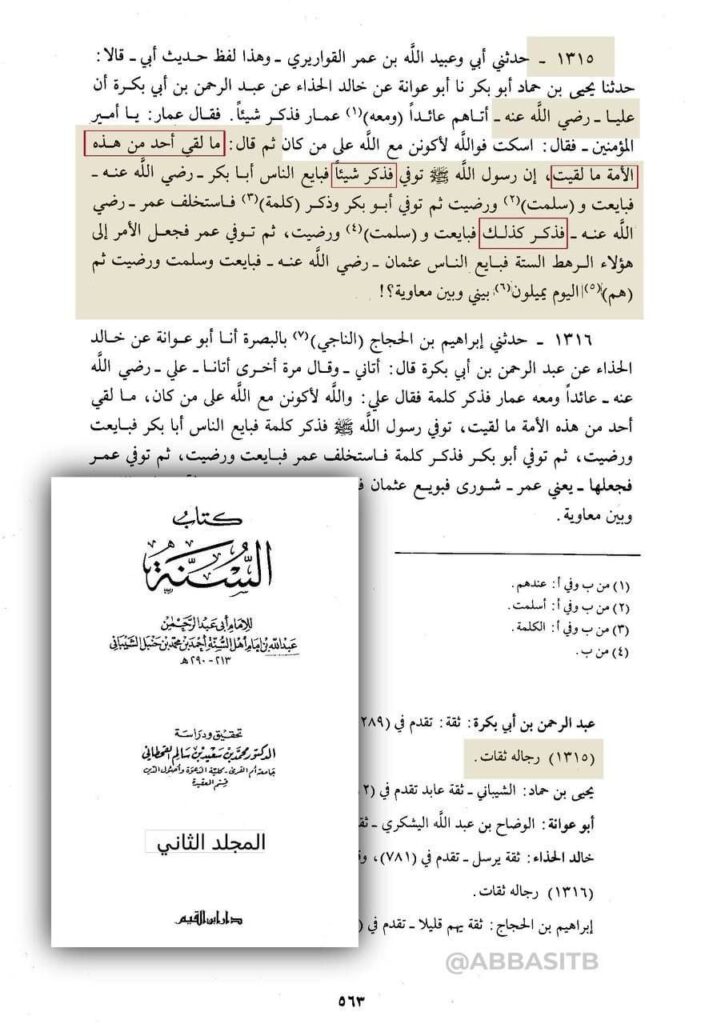 ١٣١٥ ـ حدثني أبي وعبيد اللَّه بن عمر القواريري ـ وهذا لفظ حديث أبي ـ قالا:
حدثنا يحيى بن حماد أبو بكر نا أبو عوانة عن خالد الحذاء عن عبد الرحمن بن أبي بكرة أن
عليا ـ رضي اللَّه عنه ـ أتاهم عائداً (ومعه)(١) عمار فذكر شيئاً. فقال عمار: يا أمير
المؤمنين ـ فقال: اسكت فواللَّه لأكونن مع اللَّه على من كان ثم قال: ما لقي أحد من هذه
الأمة ما لقيت، إن رسول اللَّه ﷺ توفي فذكر شيئاً فبايع الناس أبا بكر ـ رضي اللَّه عنه ـ
فبايعت و (سلمت)(٢) ورضيت ثم توفي أبو بكر وذكر (كلمة)(٣) فاستخلف عمر ـ رضي
اللَّه عنه ـ فذكر كذلك فبايعت و (سلمت)(٤) ورضيت، ثم توفي عمر فجعل الأمر إلى
هؤلاء الرهط الستة فبايع الناس عثمان ـ رضي اللَّه عنه ـ فبايعت وسلمت ورضيت ثم
(هم)(٥) اليوم يميلون(٦) بيني وبين معاوية؟!
١٣١٦ ـ حدثني إبراهيم بن الحجاج (الناجي)(٧) بالبصرة أنا أبو عوانة عن خالد
الحذاء عن عبد الرحمن بن أبي بكرة قال: أتاني ـ وقال مرة أخرى أتانا ـ علي ـ رضي اللَّه
عنه ـ عائداً ومعه عمار فذكر كلمة فقال علي: واللَّه لأكونن مع اللَّه على من كان، ما لقي
أحد من هذه الأمة ما لقيت، توفي رسول اللَّه ﷺ فذكر كلمة فبايع الناس أبا بكر فبايعت
ورضيت، ثم توفي أبو بكر فذكر كلمة فاستخلف عمر فبايعت ورضيت، ثم توفي عمر
فجعلها ـ يعني عمر ـ شورى فبويع عثمان
وبين معاوية.
(١) من ب وفي أ: عندهم.
(٢) من ب وفي أ: أسلمت.
(٣) من ب وفي أ: الكلمة.
(٤) من ب.
عبد الرحمن بن أبي بكرة: ثقة: تقدم في (٢٨٩
(١٣١٥) رجاله ثقات.
يحيى بن حماد: الشيباني ـ ثقة عابد تقدم في
أبو عوانة: الوضاح بن عبد اللَّه اليشكري ـ
خالد الحذاء: ثقة يرسل ـ تقدم في (٧٨١)،
(١٣١٦) رجاله ثقات.
إبراهيم بن الحجاج: ثقة يهم قليلا ـ تقدم في (
كتاب
السُّنّة
للإمام أبي عبد الرحمن
عبد الله بن إمام أهل السنة أحمد بن محمد بن حنبل الشيباني
٢١٣ - ٢٩٠ هـ
تحقيق ودراسة
الدكتور محمد بن سعيد بن سالم القحطاني
جامعة أم القرى - كلية الدعوة وأصول الدين
قسم العقيدة
المجلد الثاني
دار ابن القيم
@ABBASITB
٥٦٣